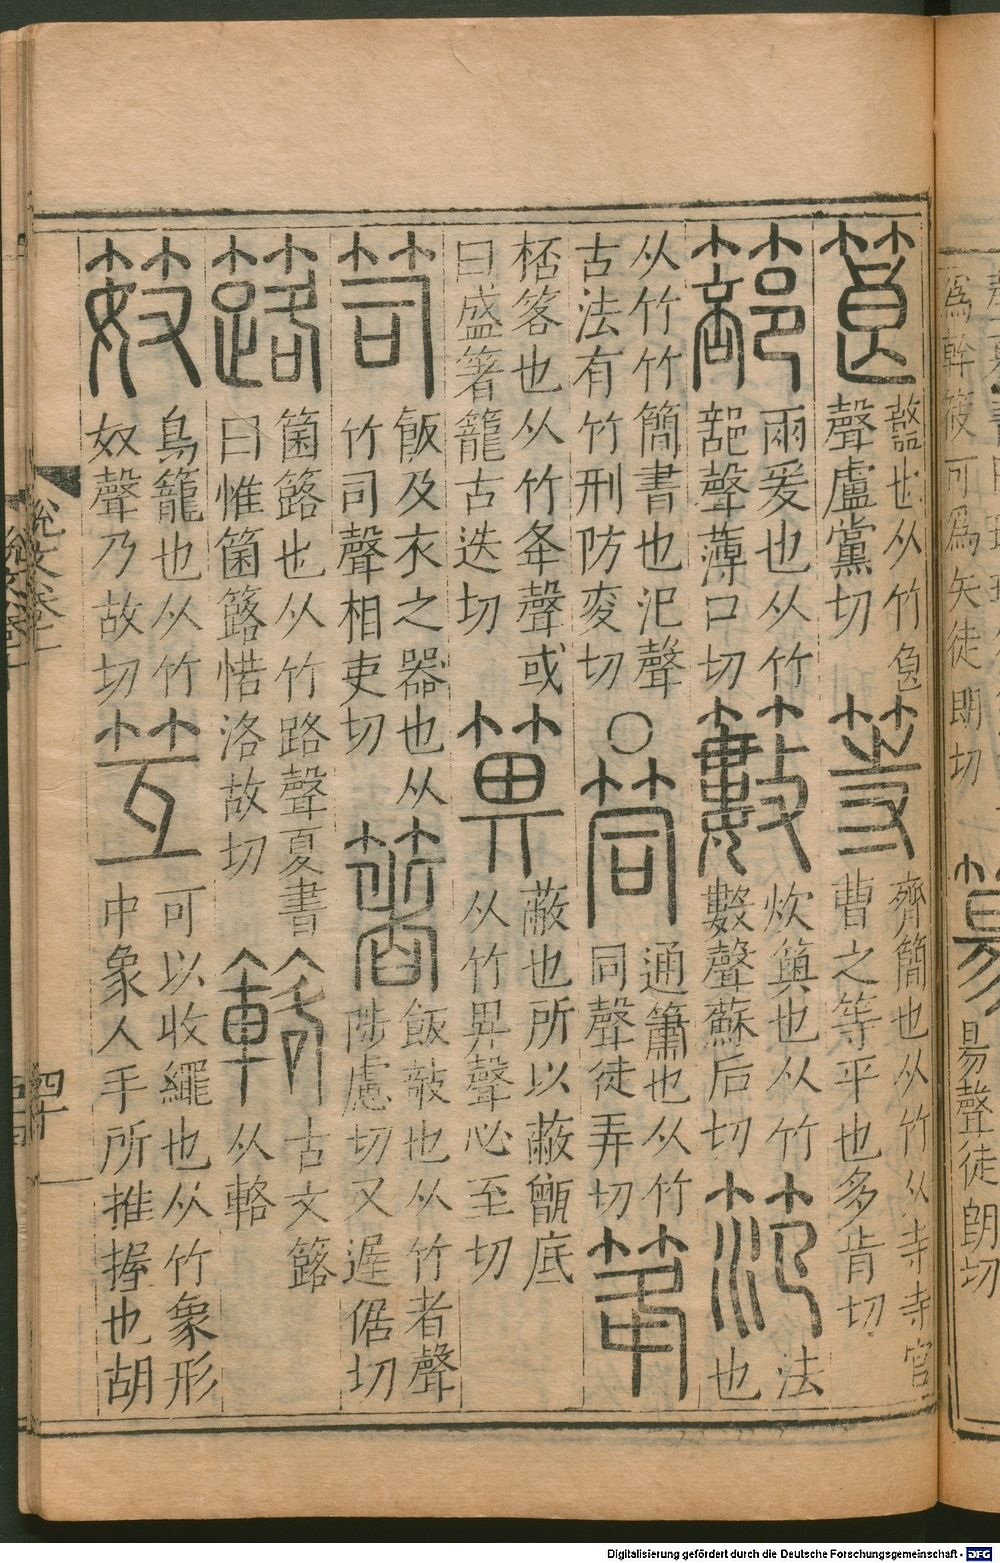 筤
也从竹
聲盧黨切
等
齊簡也从竹从寺寺官
曹之等平也多肯切
篰
兩爰也从竹
部聲薄口切
籔
炊䉛也从竹
數聲蘇后切
笵
法
也
从竹竹簡書也氾聲
古法有竹刑防変切
○
筒
通簫也从竹
同聲徒弄切
桮客也从竹夅聲或
曰盛箸籠古送切
箅
蔽也所以蔽甑底
从竹畀聲必至切
笥
飯及衣之器也从
竹司聲相吏切
箸
飯敧也从竹者聲
陟慮切又遟倨切
簬
箘簬也从竹路聲夏書
曰惟箘簬楛洛故切
簵
古文簬
从輅
笯
鳥籠也从竹
奴聲乃故切
笠
可以收繩也从竹象形
中象人手所推握也胡
說文卷十一
四十
為幹筱可為矢徒朗切
昜聲徒朗切
Digitalisierung gefördert durch die Deutsche Forschungsgemeinschaft - DFG